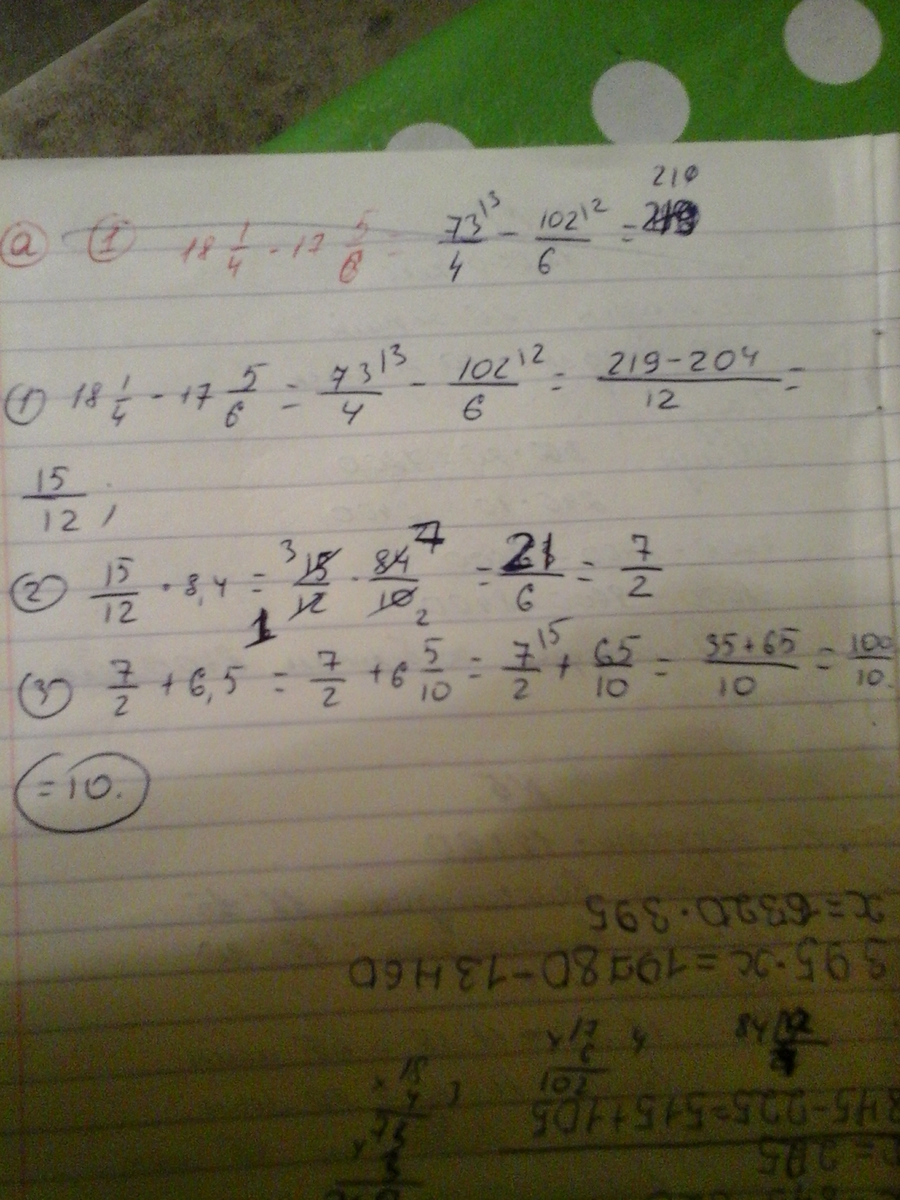 219
а 1 18 1/4 - 17 5/6 = 73^13/4 - 102^12/6 =
1) 18 1/4 - 17 5/6 = 73^13/4 - 102^12/6 = (219-204)/12 =
15/12 ;
2) 15/12 · 8,4 = 15^3/12_1 · 84^7/10_2 = 21/6 = 7/2
3) 7/2 + 6,5 = 7/2 + 6 5/10 = 7^15/2 + 65/10 = (35+65)/10 = 100/10
=10.
x=6320·395
395·x=19780-13460
345-225=515+105